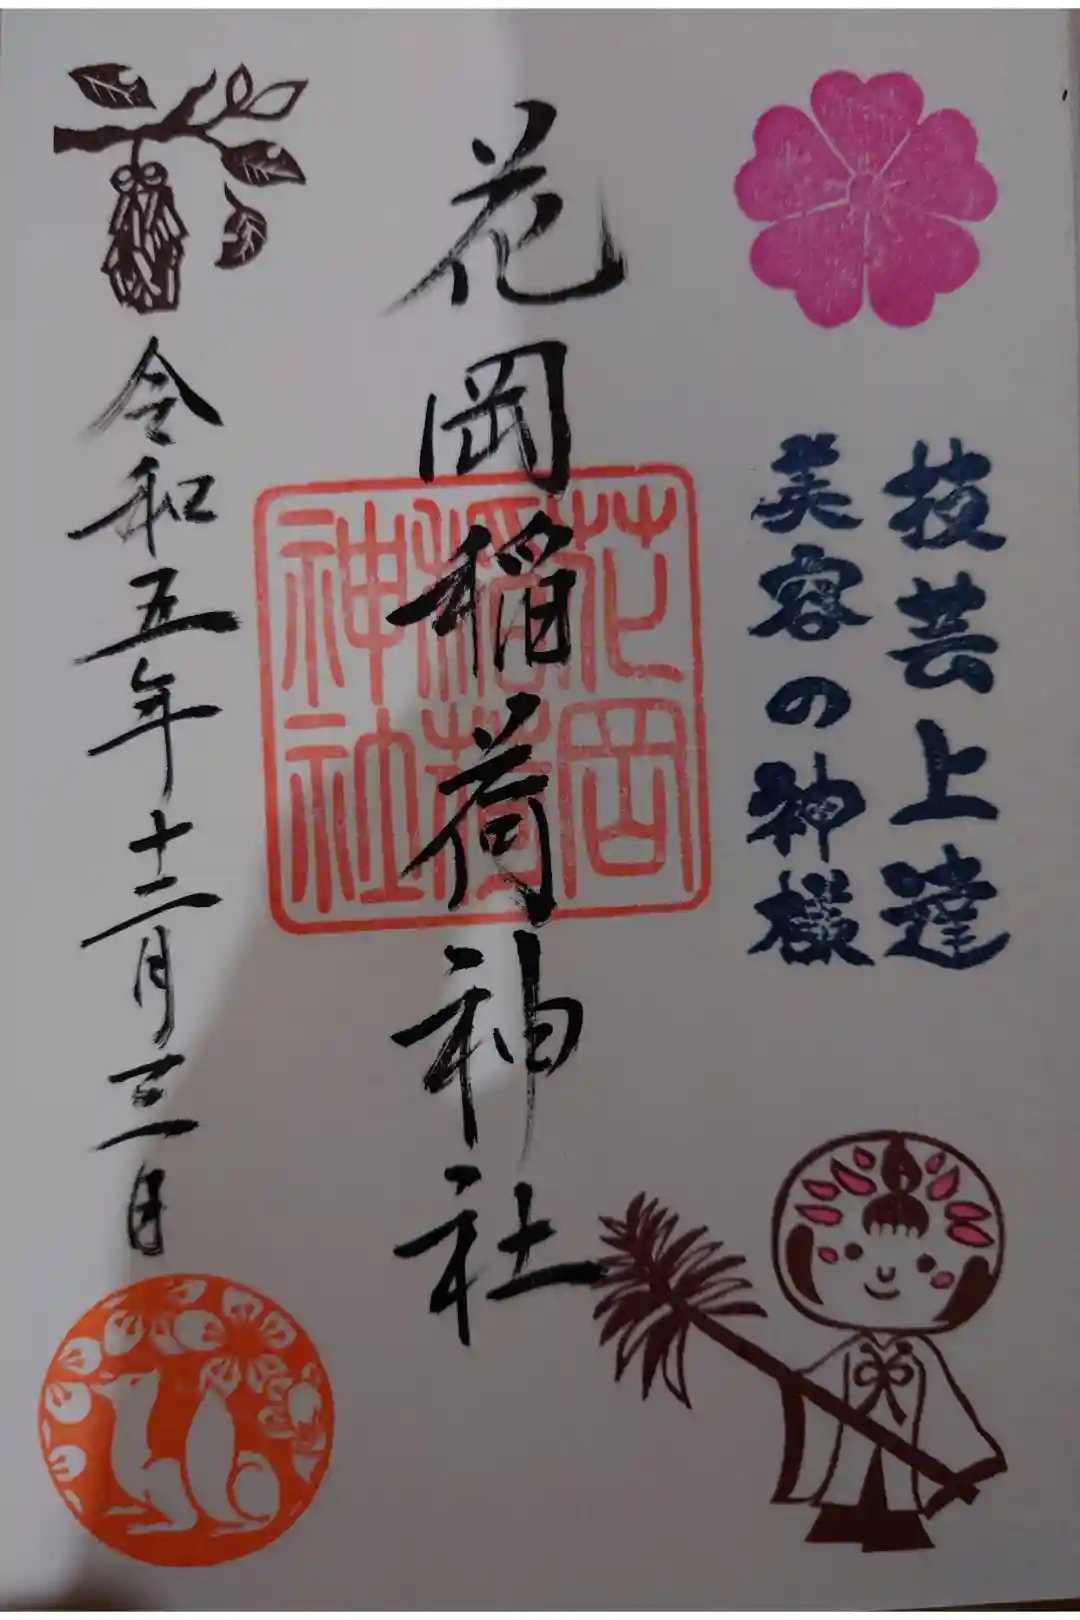 技芸上達
美容の神様
花岡稲荷神社
花岡
稲荷
神社
令和五年十二月三日